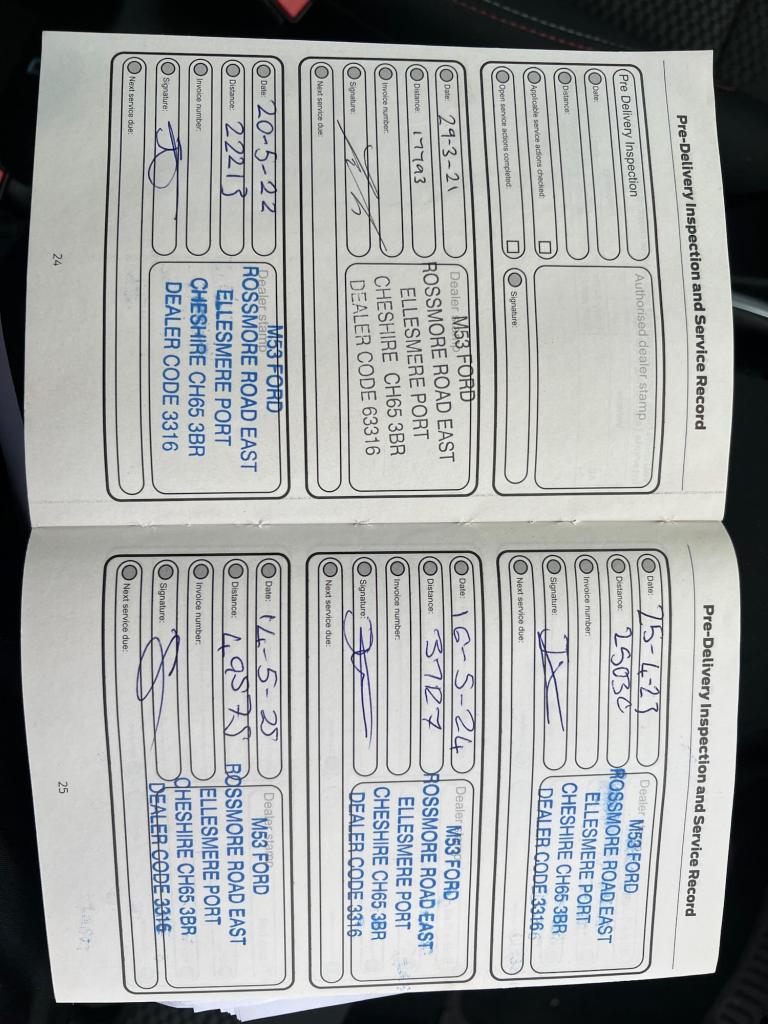 Pre-Delivery Inspection and Service Record
Pre Delivery Inspection
Date:
Distance:
Applicable service actions checked:
Open service actions completed:
Authorised dealer stamp
Signature:
Date: 29-3-21
Distance: 17793
Invoice number:
Signature:
Next service due:
Dealer stamp
M53 FORD
ROSSMORE ROAD EAST
ELLESMERE PORT
CHESHIRE CH65 3BR
DEALER CODE 63316
Date: 20-5-22
Distance: 22213
Invoice number:
Signature:
Next service due:
Dealer stamp
M53 FORD
ROSSMORE ROAD EAST
ELLESMERE PORT
CHESHIRE CH65 3BR
DEALER CODE 3316
24
Pre-Delivery Inspection and Service Record
Date: 25-4-23
Distance:
Invoice number:
Signature:
Next service due:
Dealer
M53 FORD
ROSSMORE ROAD EAST
ELLESMERE PORT
CHESHIRE CH65 3BR
DEALER CODE 3316
Date: 16-5-24
Distance: 3727
Invoice number:
Signature:
Next service due:
Dealer
M53 FORD
ROSSMORE ROAD EAST
ELLESMERE PORT
CHESHIRE CH65 3BR
DEALER CODE 3316
Date: 14-5-25
Distance: 49575
Invoice number:
Signature:
Next service due:
Dealer stamp
M53 FORD
ROSSMORE ROAD EAST
ELLESMERE PORT
CHESHIRE CH65 3BR
DEALER CODE 3316
25